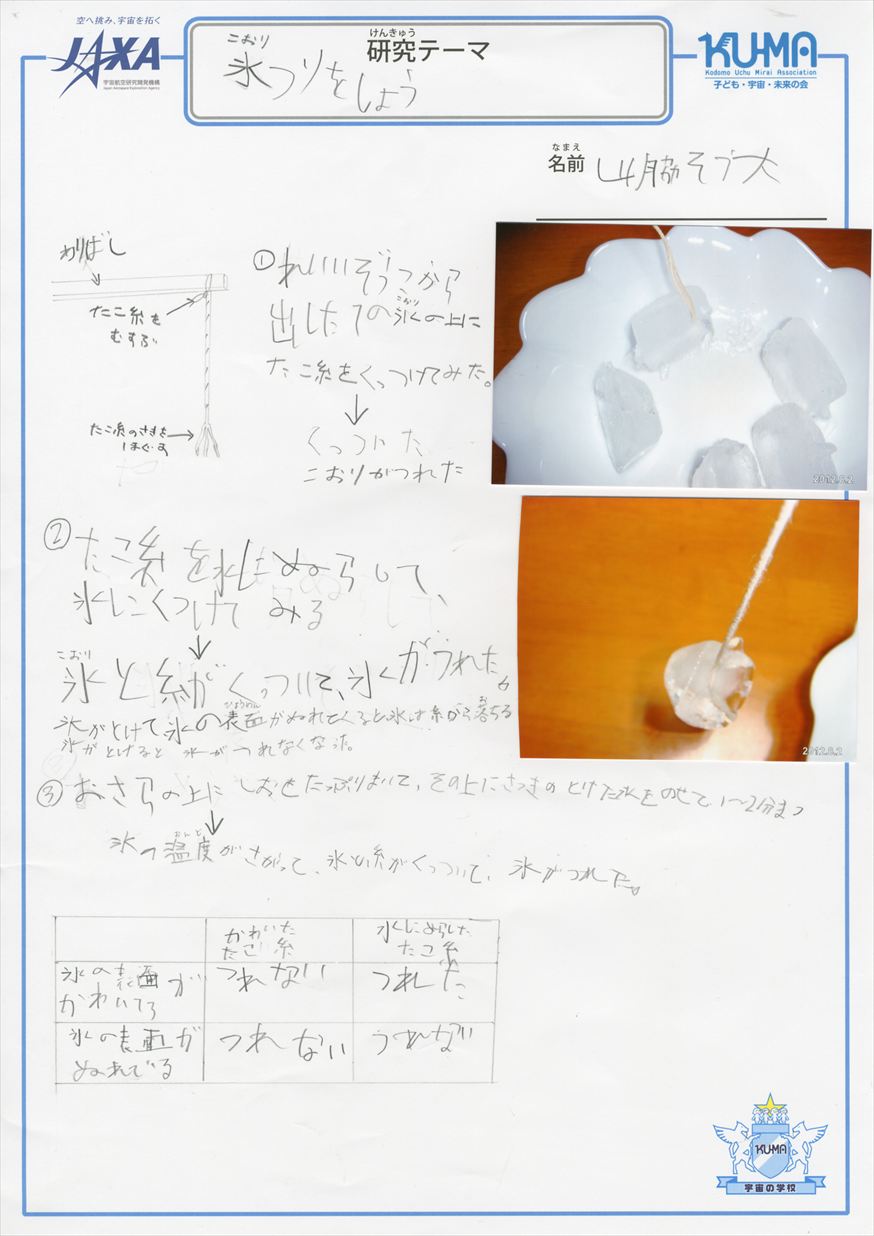 空へ挑み、宇宙を拓く
JAXA
宇宙航空研究開発機構
Japan Aerospace Exploration Agency
けんきゅう
研究テーマ
こおり
氷つりをしよう
KU-MA
Kodomo Uchu Mirai Association
子ども・宇宙・未来の会
なまえ
名前 山脇そう大
わりばし
たこ糸を
むすぶ
たこ糸のさきを
ほぐす
①れいぞうこから
出したての氷の上に
こおり
たこ糸をくっつけてみた。
↓
くっついた
こおりがつれた
2012.6.2
②たこ糸を水にぬらして、
氷にくつけてみる
↓
こおり
氷と糸がくっついて、氷がつれた。
ひょうめん
お
氷がとけて氷の表面がぬれてくると氷は糸から落ちる
氷がとけると氷がつれなくなった。
2012.6.2
③おさらの上にしおをたっぷりまいて、その上にさっきのとけた氷をのせて、1〜2分まつ
↓
おんど
氷の温度がさがって、氷と糸がくっついて、氷がつれた。
かわいた
たこ糸
水にぬらした
たこ糸
氷の表面が
かわいてる
つれない
つれた
氷の表面が
ぬれている
つれない
つれない
KU-MA
宇宙の学校